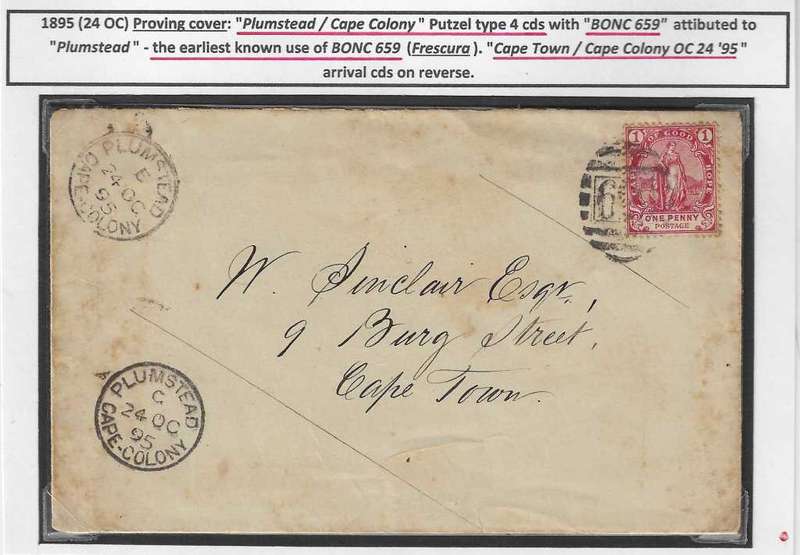 1895 (24 OC) Proving cover: "Plumstead / Cape Colony" Putzel type 4 cds with "BONC 659" attibuted to
"Plumstead" - the earliest known use of BONC 659 (Frescura). "Cape Town / Cape Colony OC 24 '95"
arrival cds on reverse.
PLUMSTEAD
E
24 OC
95
CAPE-COLONY
1 OF GOOD 1
HOPE
ONE PENNY
POSTAGE
W. Sinclair Esqr,
9 Burg Street,
Cape Town.
PLUMSTEAD
C
24 OC
95
CAPE-COLONY